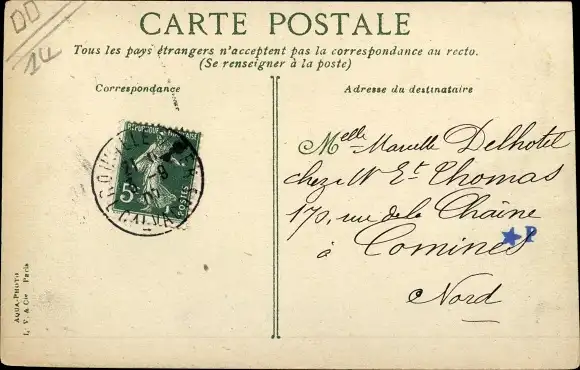 DD
14
CARTE POSTALE
Tous les pays étrangers n'acceptent pas la correspondance au recto.
(Se renseigner à la poste)
Correspondance
Adresse du destinataire
5c
POSTES
AQUA-PHOTO
L. V. & Cie Paris
Melle Marcelle Delhotel
chez Mr Et Thomas
170, rue de la Chaîne
à Comines
P
Nord